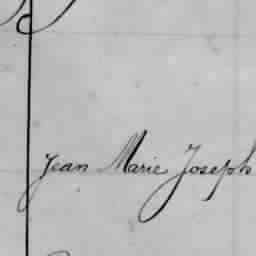 Jean Marie Joseph